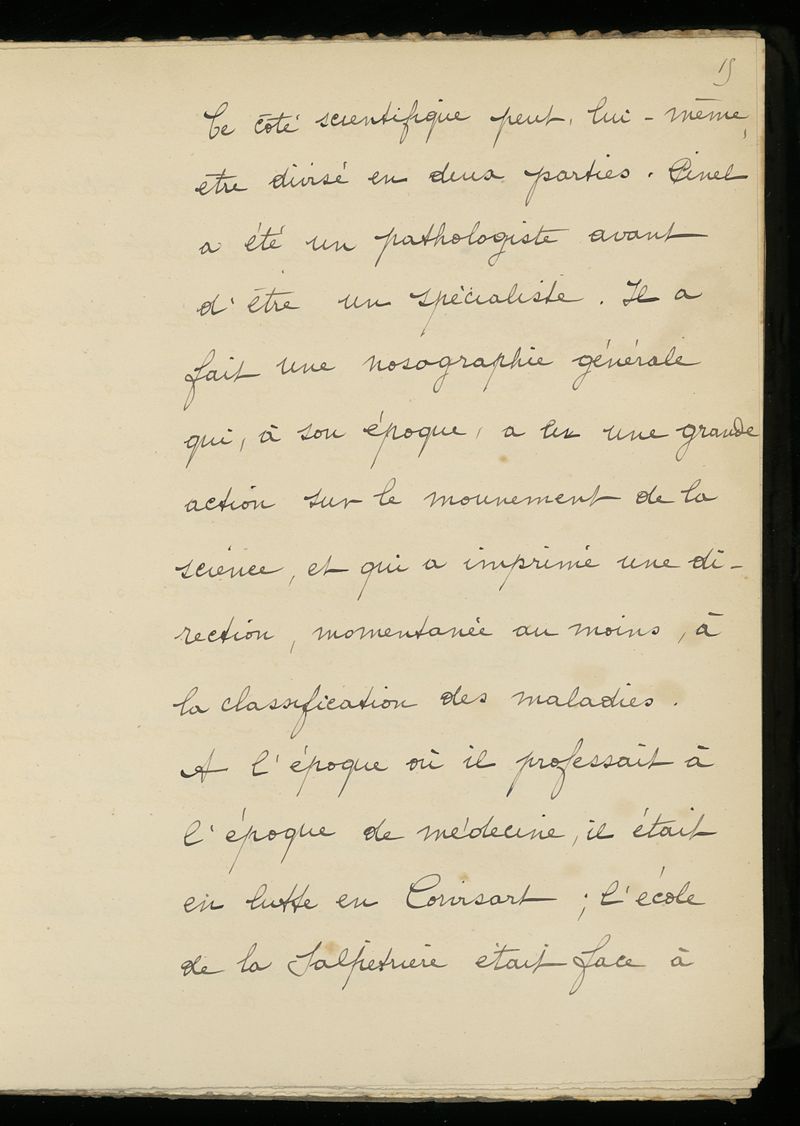 15
Ce côté scientifique peut, lui-même,
être divisé en deux parties. Pinel
a été un pathologiste avant
d'être un spécialiste. Il a
fait une nosographie générale
qui, à son époque, a eu une grande
action sur le mouvement de la
science, et qui a imprimé une di-
rection, momentanée au moins, à
la classification des maladies.
A l'époque où il professait à
l'époque de médecine, il était
en lutte en Corvisart ; l'école
de la Salpêtrière était face à